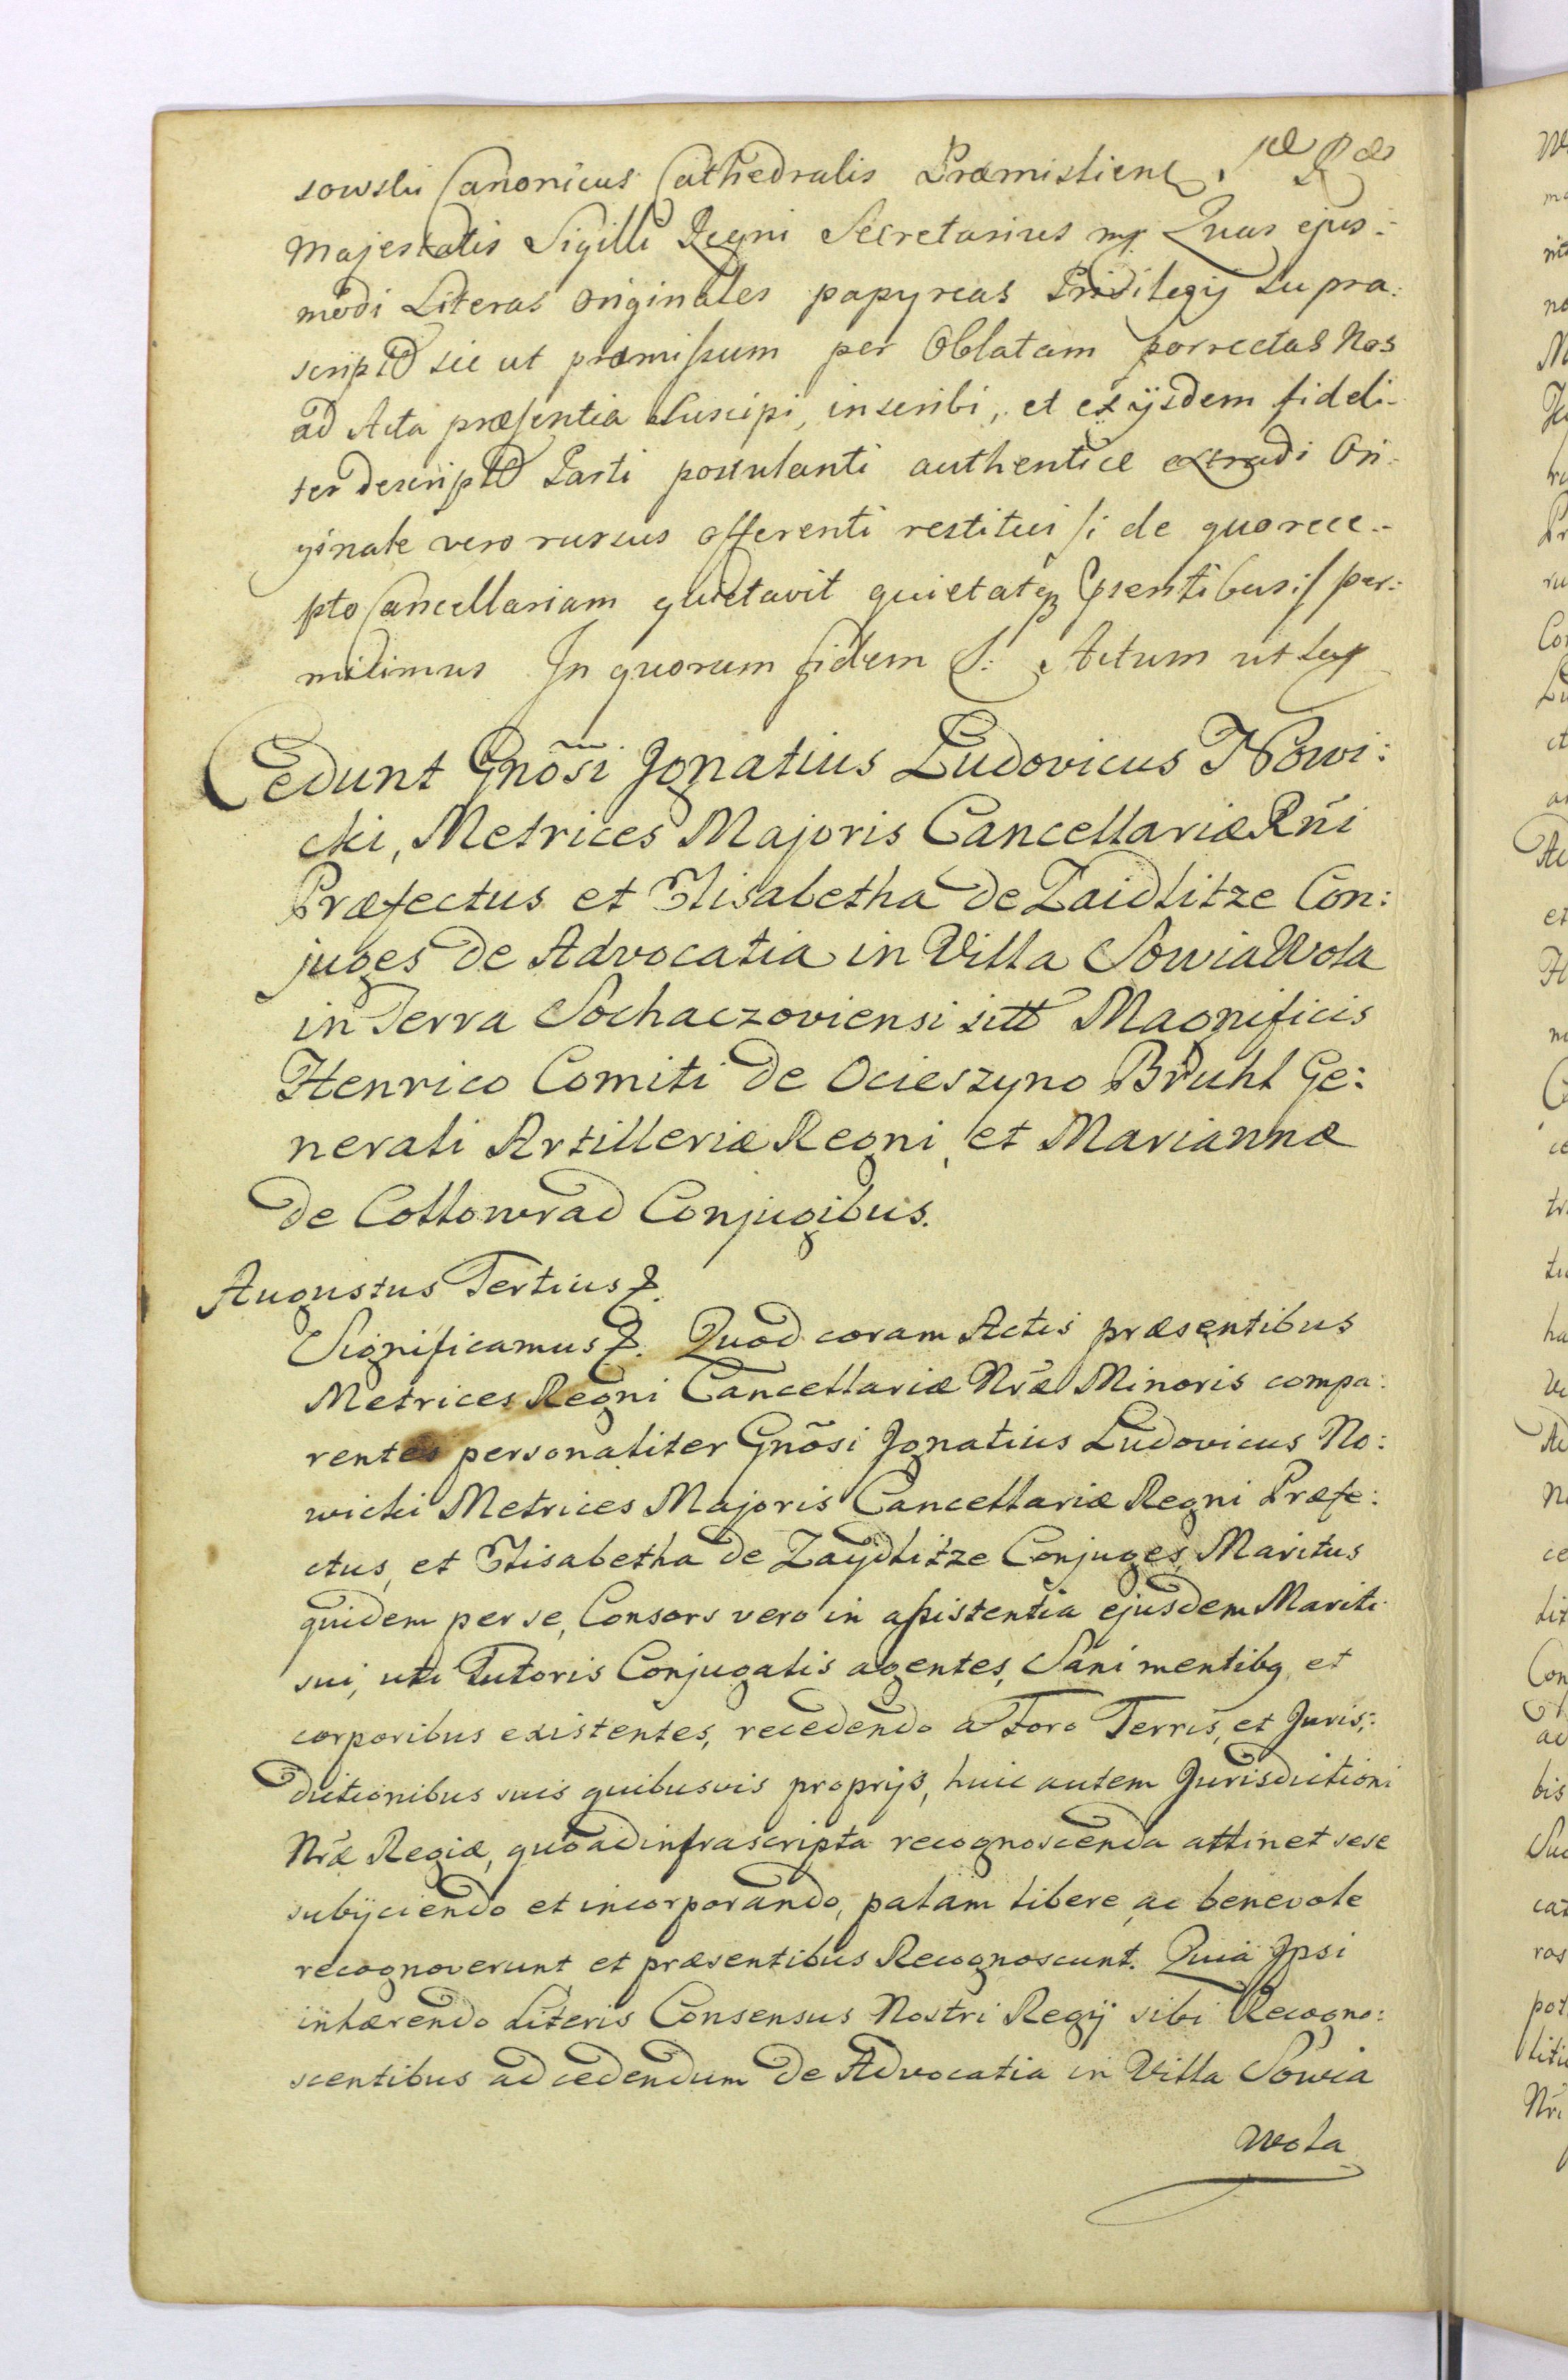 sowski Canonicus Cathedralis Præmisliens. S. R.
Majestatis Sigilli Regni Secretarius mp. Quas ejus:
modi Literas originales papyreas Privilegij supra:
scripti sic ut præmissum per Oblatam porrectas Nos
ad Acta præsentia suscipi, inscribi, et ex ijsdem fideli-
ter descript Parti postulanti authentice extradi Ori-
ginale vero rursus offerenti restitui /: de quo rece-
pto Cancellariam quietavit quietatq præsentibus :/ per:
mittimus In quorum fidem &: Actum ut sup
Cedunt Gnõsi Ignatius Ludovicus Nowi:
cki, Metrices Majoris Cancellariæ Rñi
Præfectus et Elisabetha de Zaidlitze Con:
juges de Advocatia in Villa Sowia Wola
in Terra Sochaczoviensi sitt Magnificis
Henrico Comiti de Ocieszyno Bruhl Ge:
nerali Artilleriæ Regni, et Mariannæ
de Collowrad Conjugibus.
Augustus Tertius &.
Significamus &. Quod coram Actis præsentibus
Metrices Regni Cancellariæ Nr̃æ Minoris compa:
rentes personaliter Gnõsi Ignatius Ludovicus No:
wicki Metrices Majoris Cancellariæ Regni Præfe:
ctus, et Elisabetha de Zaydlitze Conjuges, Maritus
quidem per se, Consors vero in assistentia ejusdem Mariti
sui, uti Tutoris Conjugalis agentes, Sani mentibq et
corporibus existentes, recedendo a Foro Terris, et Juris:
dictionibus suis quibusvis proprijs, huic autem Jurisdictioni
Nr̃æ Regiæ, quo ad infrascripta recognoscenda attinet sese
subijciendo et incorporando, palam libere ac benevole
recognoverunt et præsentibus Recognoscunt. Quia Ipsi
inhærendo Literis Consensus Nostri Regij sibi Recogno:
scentibus ad cedendum de Advocatia in Villa Sowia
Wola